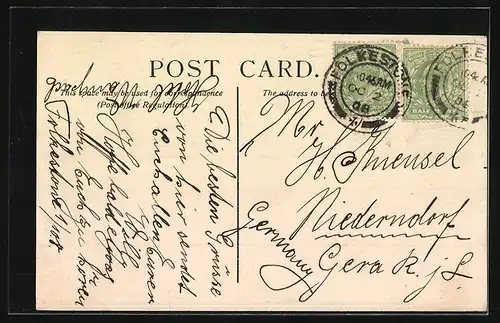 POST CARD.
This space may be used for correspondence
(Post Office Regulation).
The address to be
FOLKESTONE
OC 2
08
FOLKE
Die besten Grüsse
von hier sendet
Euch allen Euer
Willy
Hoffe bald etwas
von Euch zu hören
Folkestone 1/10 08
Mr. H. Kneusel
Niederndorf
Gera
Germany